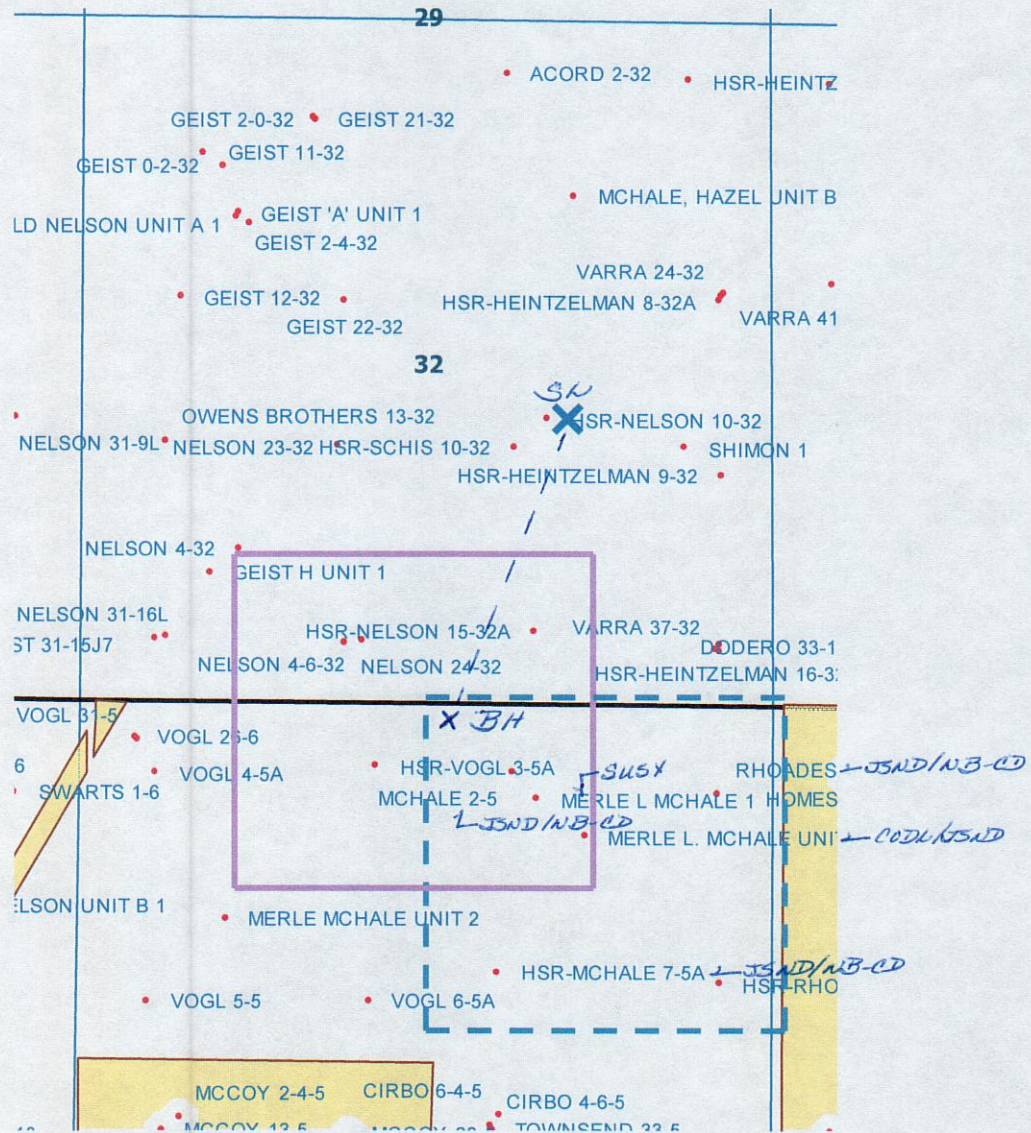 29
ACORD 2-32
HSR-HEINTZ
GEIST 2-0-32
GEIST 21-32
GEIST 11-32
GEIST 0-2-32
MCHALE, HAZEL UNIT B
LD NELSON UNIT A 1
GEIST 'A' UNIT 1
GEIST 2-4-32
VARRA 24-32
GEIST 12-32
HSR-HEINTZELMAN 8-32A
VARRA 41
GEIST 22-32
32
OWENS BROTHERS 13-32
HSR-NELSON 10-32
NELSON 31-9L
NELSON 23-32
HSR-SCHIS 10-32
SHIMON 1
HSR-HEINTZELMAN 9-32
NELSON 4-32
GEIST H UNIT 1
NELSON 31-16L
HSR-NELSON 15-32A
VARRA 37-32
ST 31-15J7
DODERO 33-1
NELSON 4-6-32
NELSON 24-32
HSR-HEINTZELMAN 16-32
VOGL 31-5
X BH
VOGL 26-6
6
VOGL 4-5A
HSR-VOGL 3-5A
SUSX
RHOADES
JSND/NB-CD
SWARTS 1-6
MCHALE 2-5
MERLE L MCHALE 1
HOMES
JSND/NB-CD
MERLE L. MCHALE UNI
CODL/JSND
ELSON UNIT B 1
MERLE MCHALE UNIT 2
HSR-MCHALE 7-5A
JSND/NB-CD
HSR-RHO
VOGL 5-5
VOGL 6-5A
MCCOY 2-4-5
CIRBO 6-4-5
CIRBO 4-6-5
MCCOY 13-5
TOWNSEND 33-5